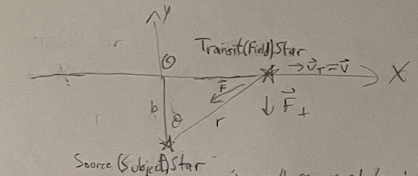 Y
Transit(Field)Star
O
→v⃗_T=v⃗
X
F⃗
b
θ
r
↓F⃗⊥
Source(Subject)Star